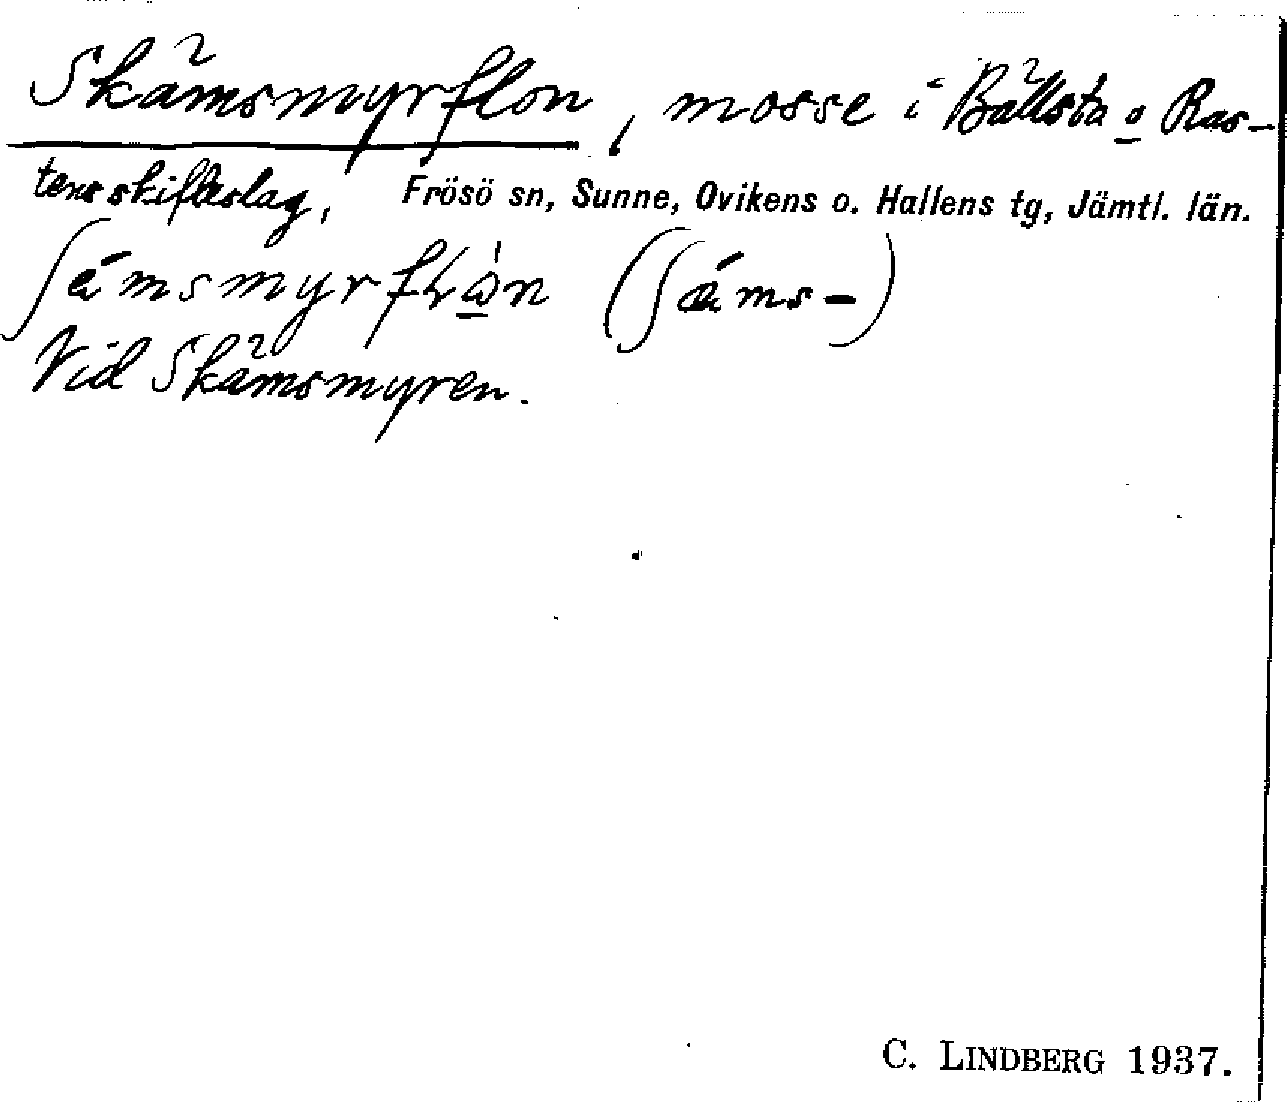 Skämsmyrflon, mosse i Bällsta o Ras-
tens skifteslag, Frösö sn, Sunne, Ovikens o. Hallens tg, Jämtl. län.
(ʃäms-)
Vid Skämsmyren.
C. LINDBERG 1937.